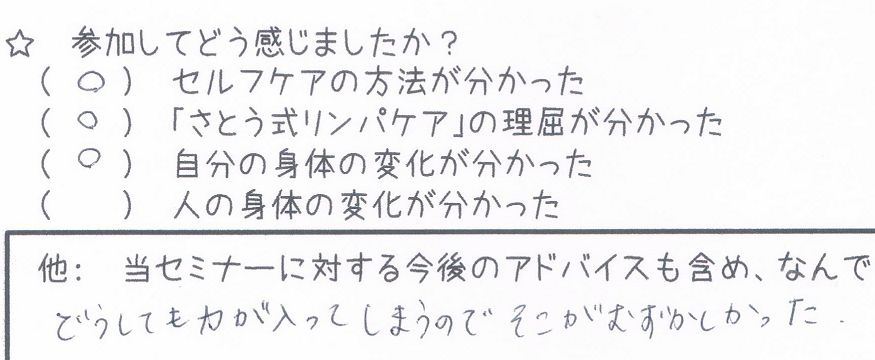 ☆ 参加してどう感じましたか？
( ○ ) セルフケアの方法が分かった
( ○ ) 「さとう式リンパケア」の理屈が分かった
( ○ ) 自分の身体の変化が分かった
( ) 人の身体の変化が分かった
他： 当セミナーに対する今後のアドバイスも含め、なんで
どうしても力が入ってしまうのでそこがむずかしかった.